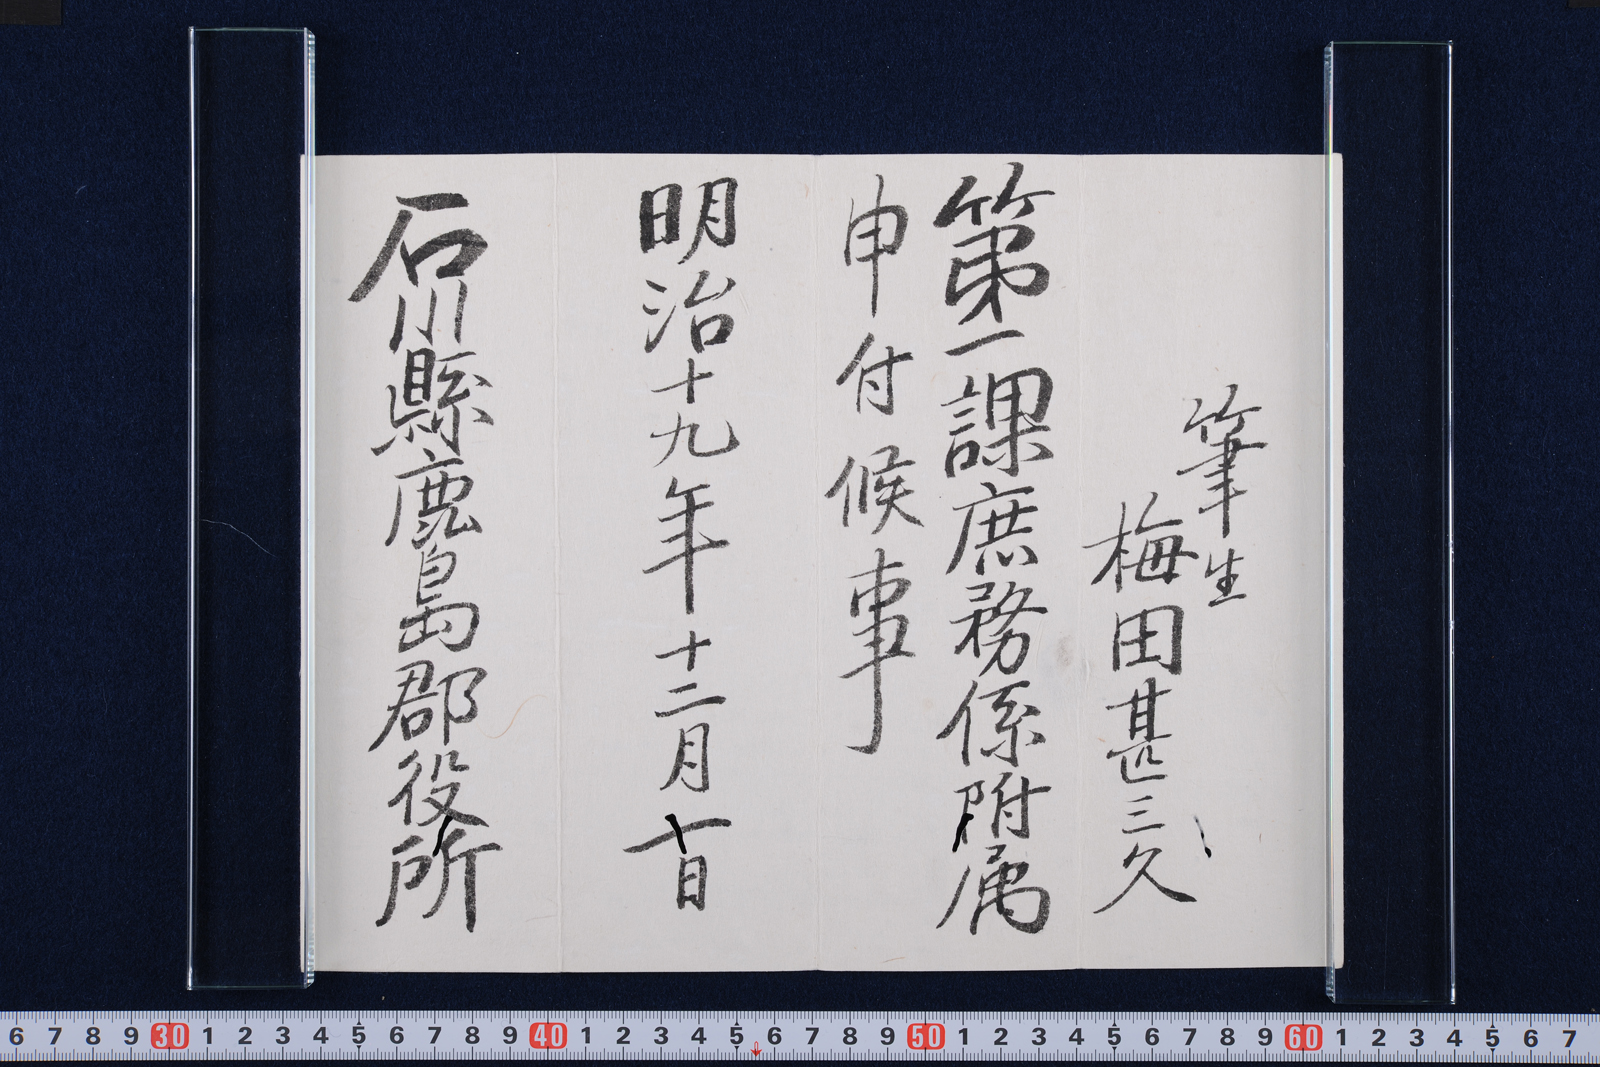 筆生
梅田甚三久
第一課庶務係附属
申付候事
明治十九年十二月一日
石川縣鹿島郡役所
6 7 8 9 30 1 2 3 4 5 6 7 8 9 40 1 2 3 4 5 6 7 8 9 50 1 2 3 4 5 6 7 8 9 60 1 2 3 4 5 6 7